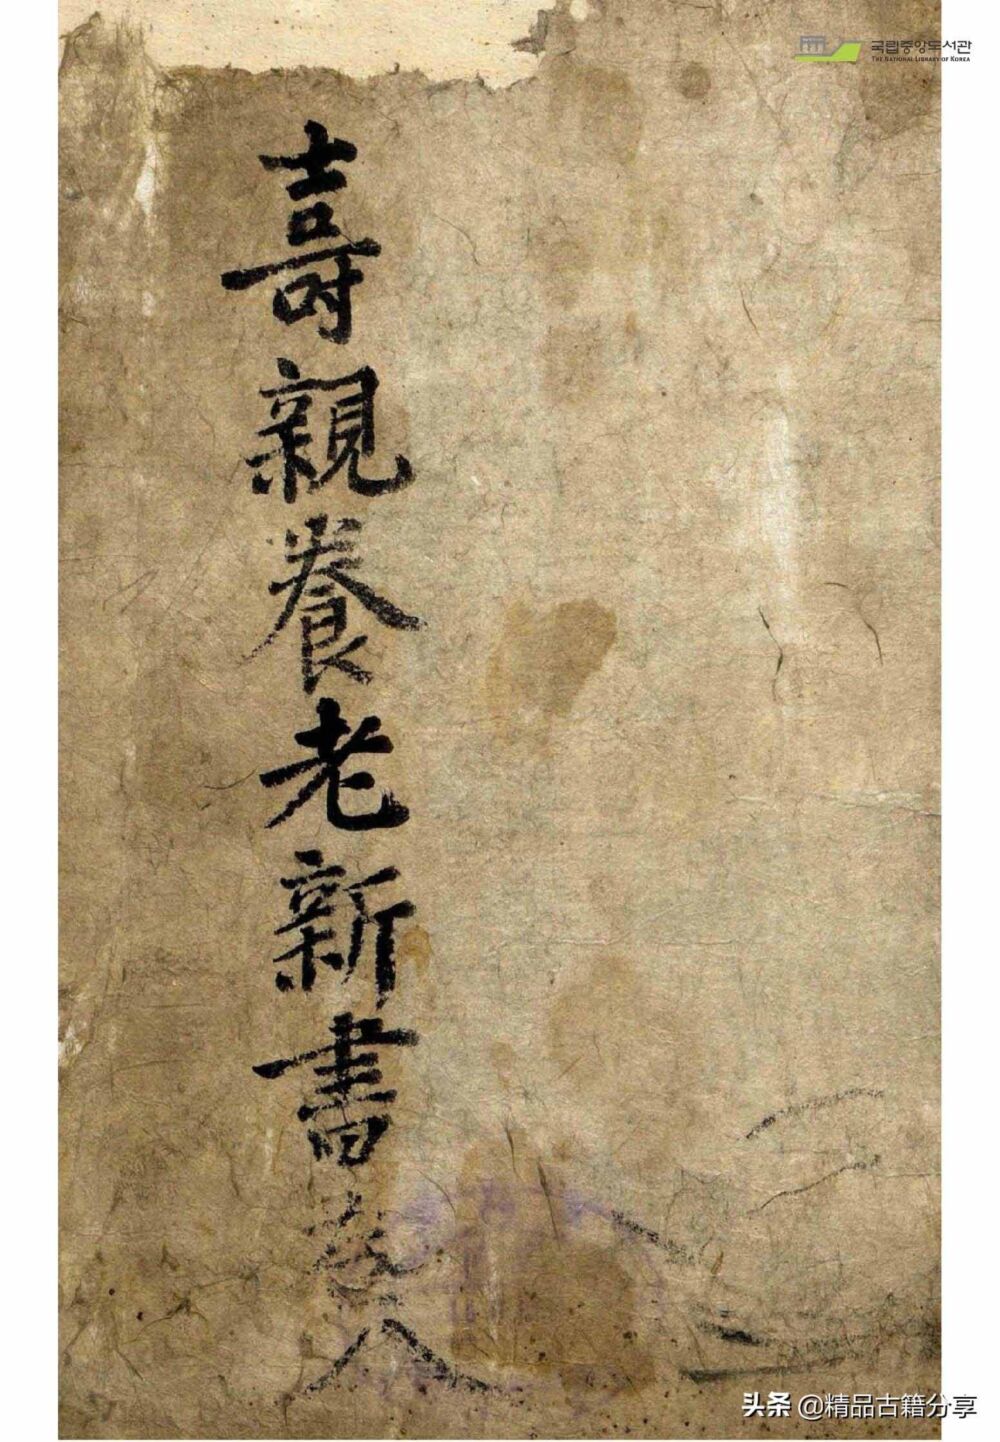 국립중앙도서관
THE NATIONAL LIBRARY OF KOREA
壽親養老新書
头条 @精品古籍分享